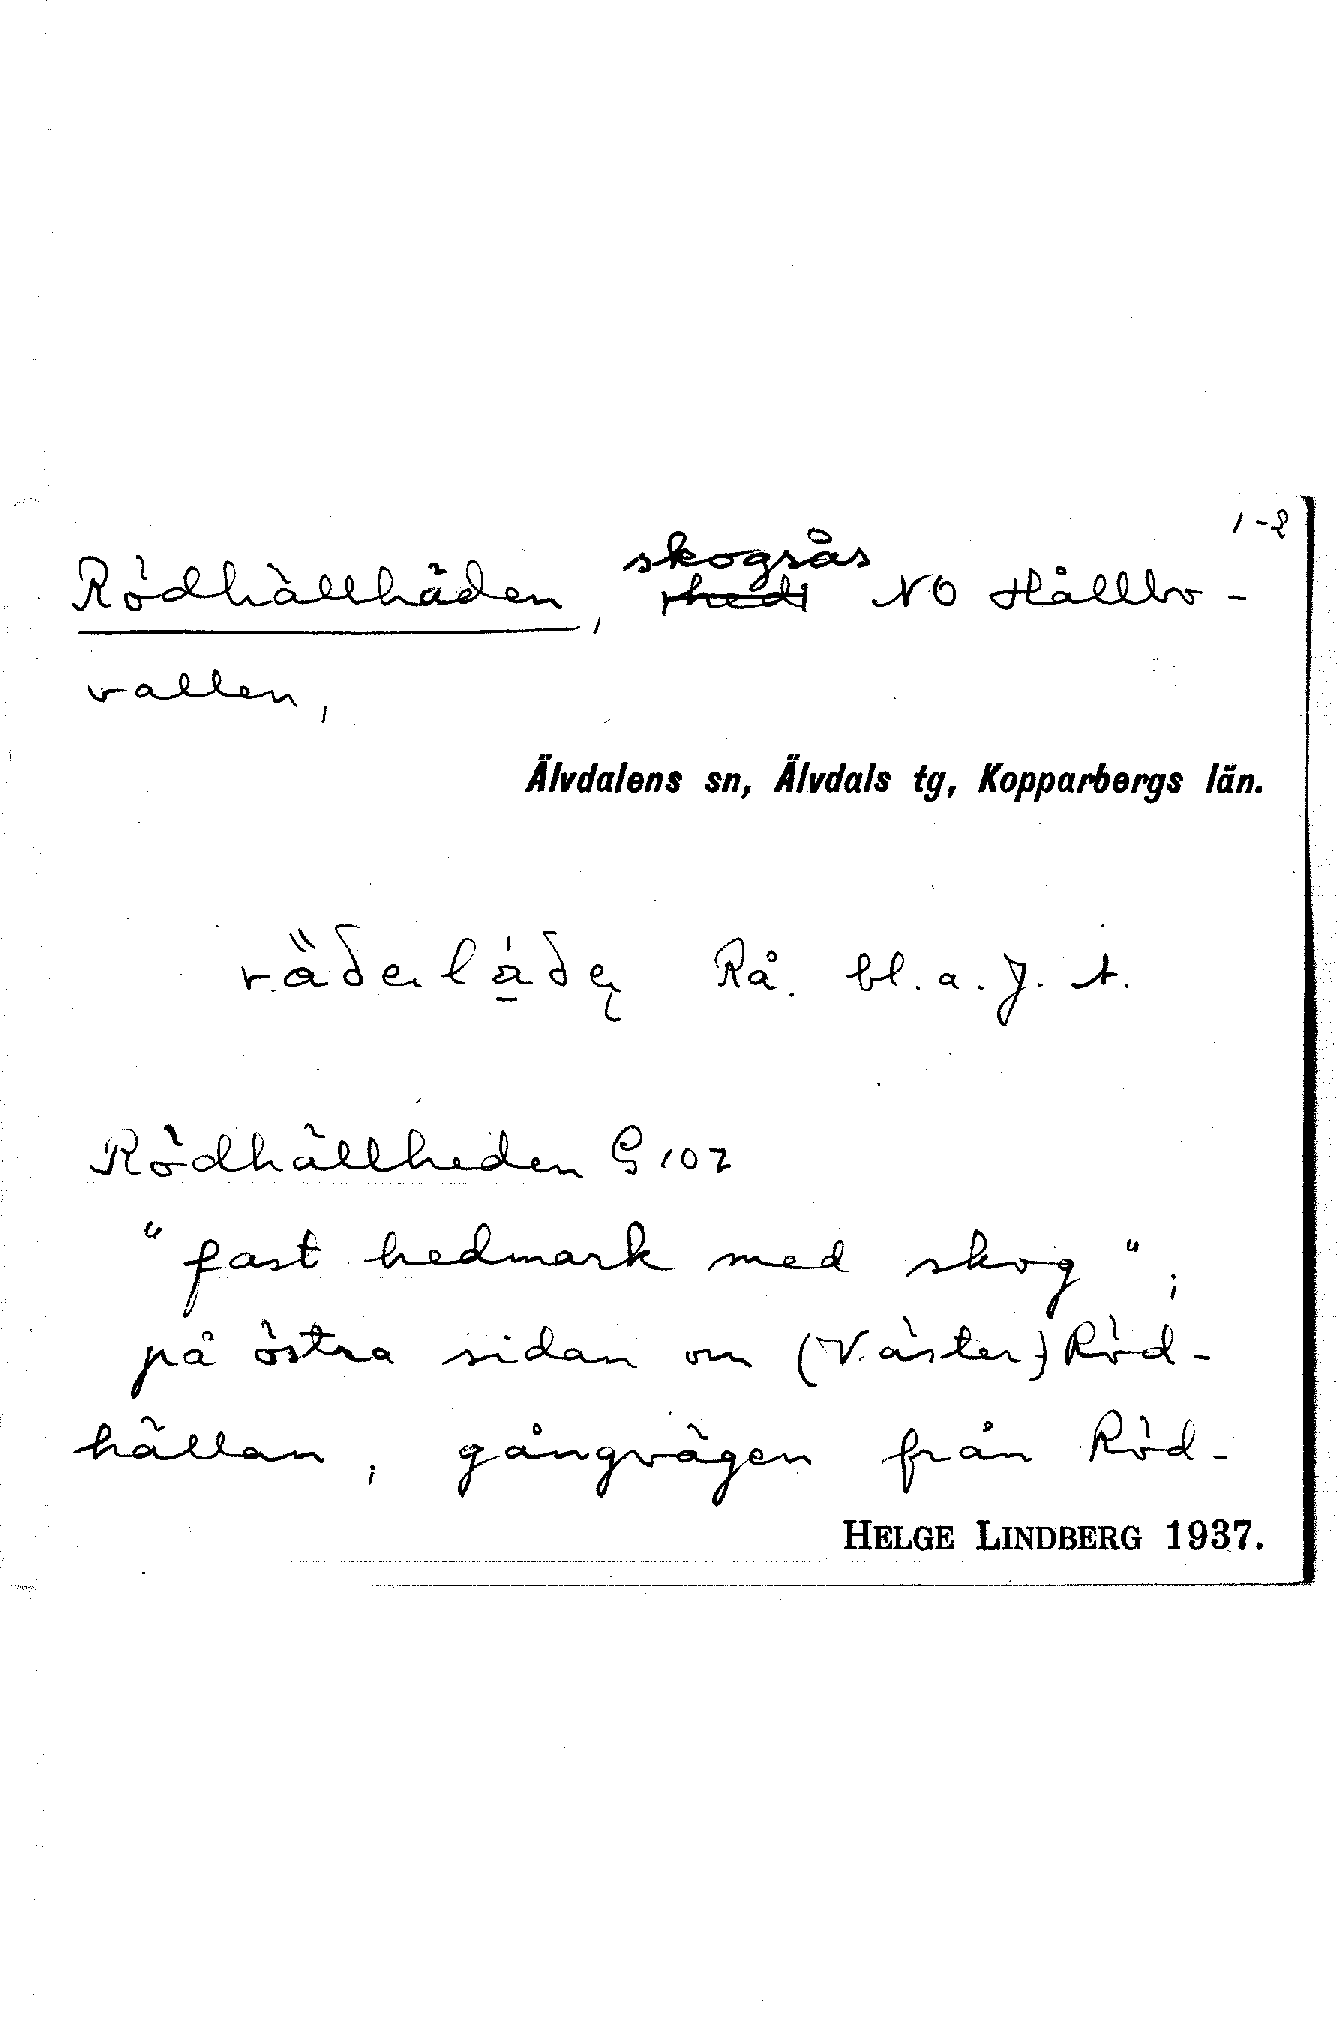 1-2
Rödhällhäden, skogsås NO Hållbo-
vallen,
Älvdalens sn, Älvdals tg, Kopparbergs län.
Rå. bl.a. J. t.
Rödhällheden G 102
"fast hedmark med skog";
på östra sidan om (Väster-)Röd-
hällan, gångvägen från Röd-
HELGE LINDBERG 1937.